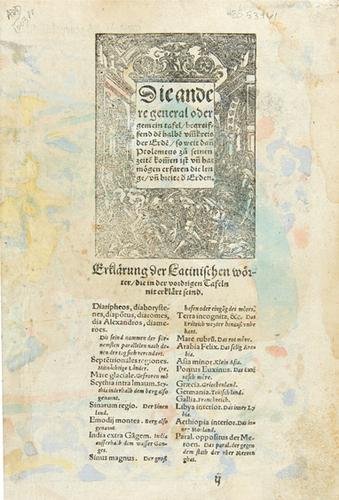 Die ande
re general oder
gemein tafel / begreif-
fend dē halbē vm̄kreis
der Erdē / so weit dan̄
Ptolemeus zů seinen
zeitē kom̄en ist vn̄ hat
mögen erfaren die len
ge / vn̄ breite d' Erden.
Erklärung der Latinischen wör-
ter / die in der vordigen Tafeln
nit erklärt seind.
Diaripheos, diaborysthe-
nes, diapōtus, diaromes,
dia Alexandros, diame-
roes.
Die seind nammer der für-
nemsten paralleln nach de-
nen die tag sich verendert.
Septētrionales regiones.
Mitnächtige Länder.
Mare glaciale. Gefroren mö
Scythia intra Imaum. Scy-
thia innerhalb dem berg also
genannt.
Sinarum regio. Der Sinen
land.
Emodij montes. Berg also
genannt.
India extra Gāgem. India
ausserhalb dem wasser Gan-
ges.
Sinus magnus. Der groß
hafen oder eingāg des mörs.
Terra incognita, &c. Das
Erdtrich weyter hinauß vnbe
kant.
Mare rubrū. Das rot möre.
Arabia Felix. Das selig Ara-
bia.
Asia minor. Klein Asia.
Pontus Euxinus.
Græcia. Griechenland.
Germania. Teütschland.
Gallia. Franckreich.
Libya interior. Das inner Ly
bia.
Aethiopia interior. Das in-
ner Morland.
Paral. oppositus der Me-
roen. Das paral. der gegen
dem statt der über Meroen